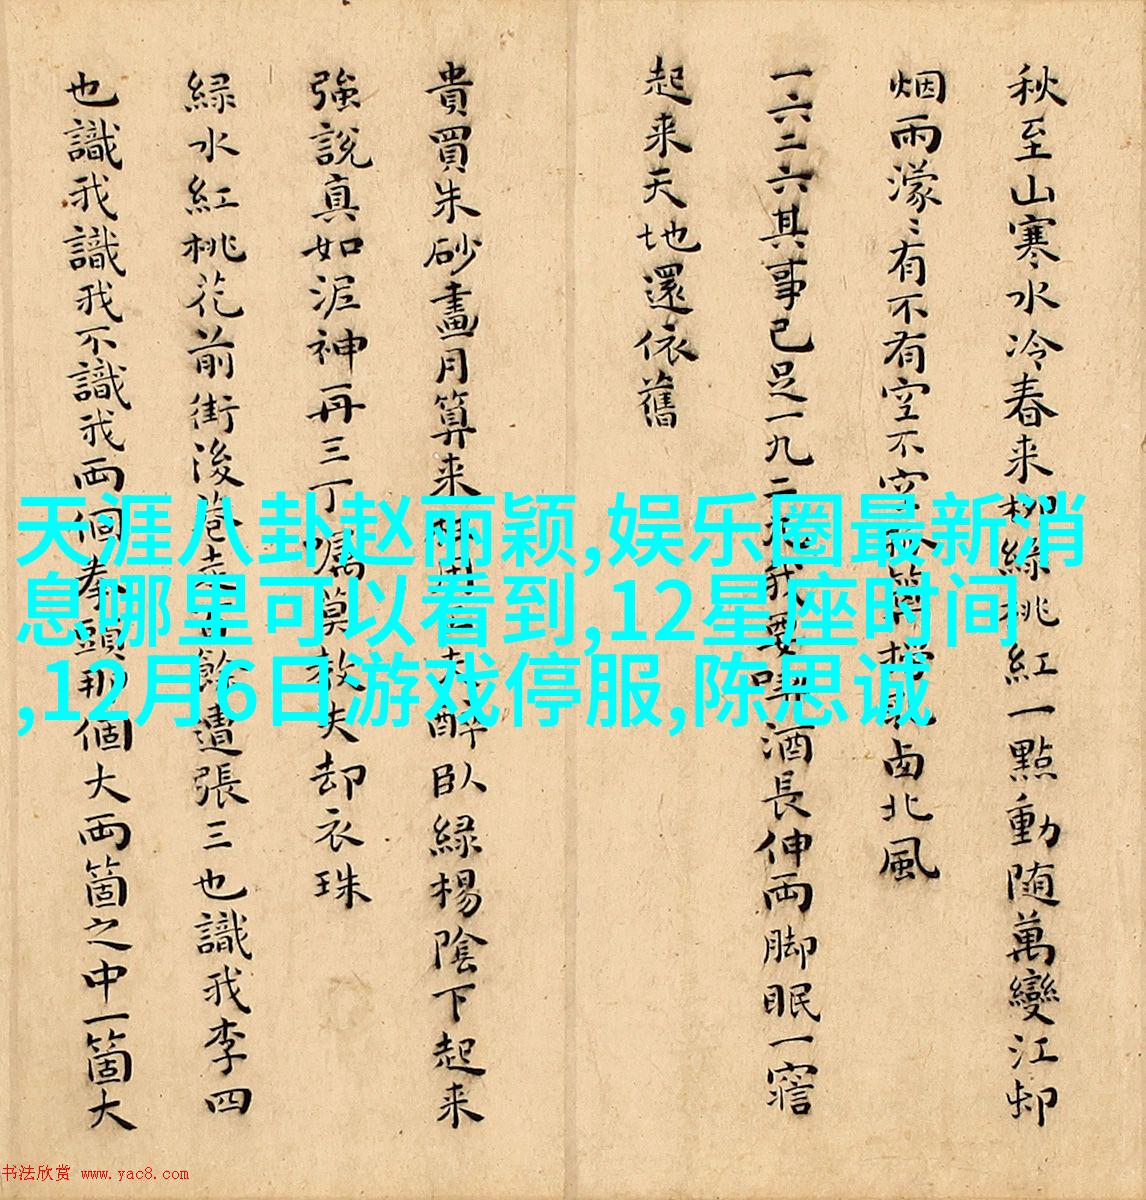 秋至山寒水冷春来柳絲桃紅一點動随萬變江邨
烟雨濛〻有不有空不空北風
一六二六其事已足一九二我要酒長伸両脚眠一寤
起来天地還依舊
貴買朱砂畫月算来醉臥緑楊陰下起来
強說真如泥神再三丁嘱莫教失却衣珠
緑水紅桃花前街後巷走餘遭張三也識我李四
也識我識我不識我両個拳頭那個大両箇之中一箇大
天涯八卦赵丽颖,娱乐圈最新消
息哪里可以看到,12星座时间
,12月6日游戏停服,陈思诚
书法欣赏 www.yac8.com